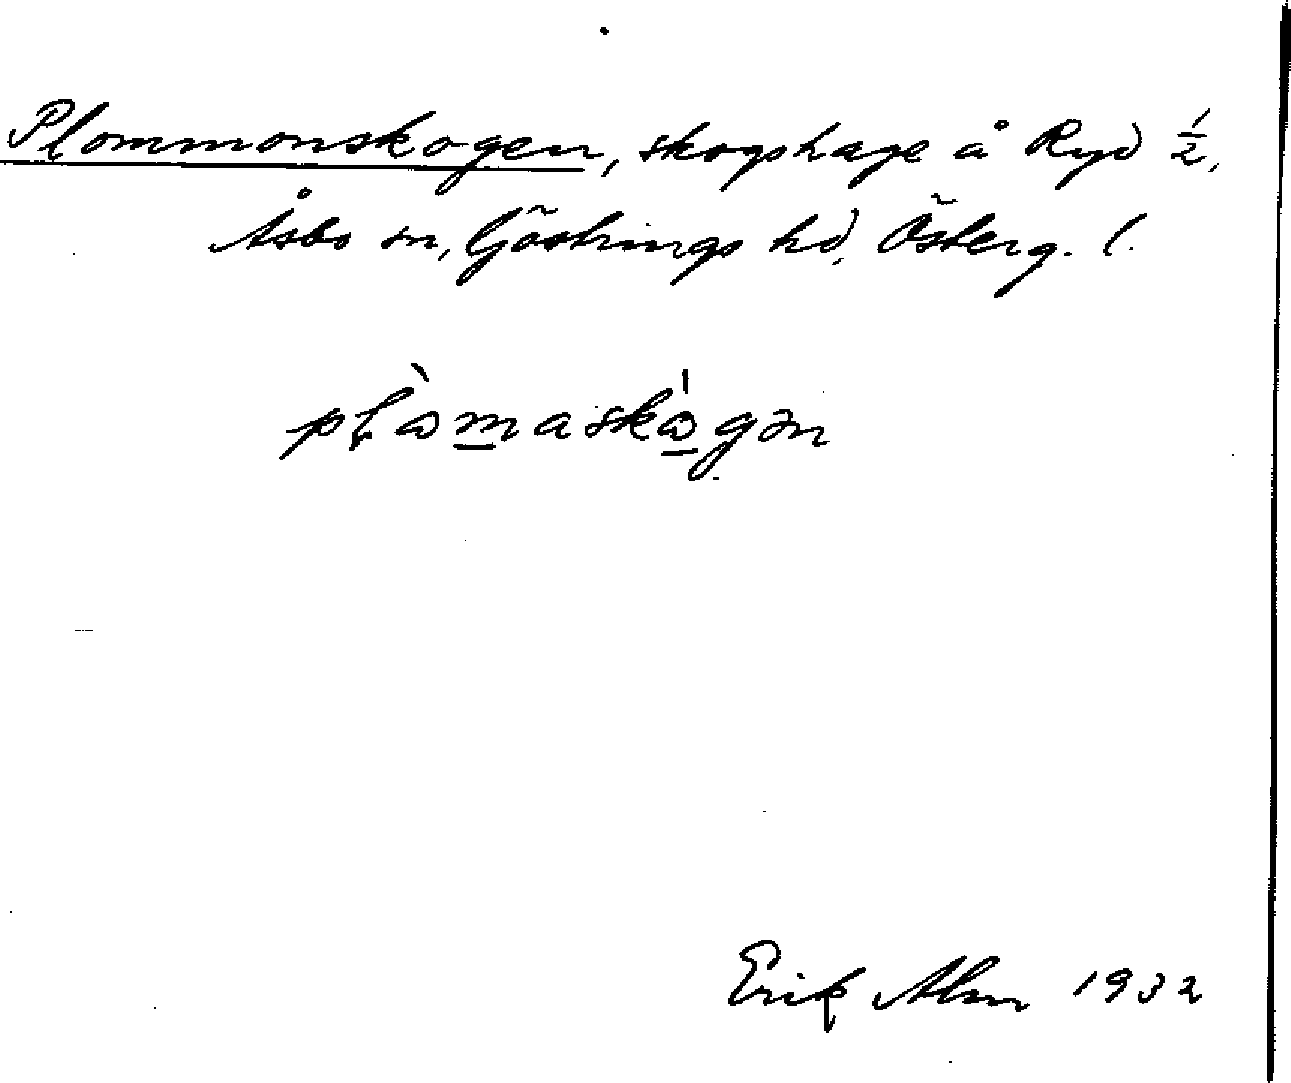 Plommonskogen, skogshage å Ryd 1/2,
Åsbo sn, Göstrings hd, Österg. l.
Erik Alm 1932